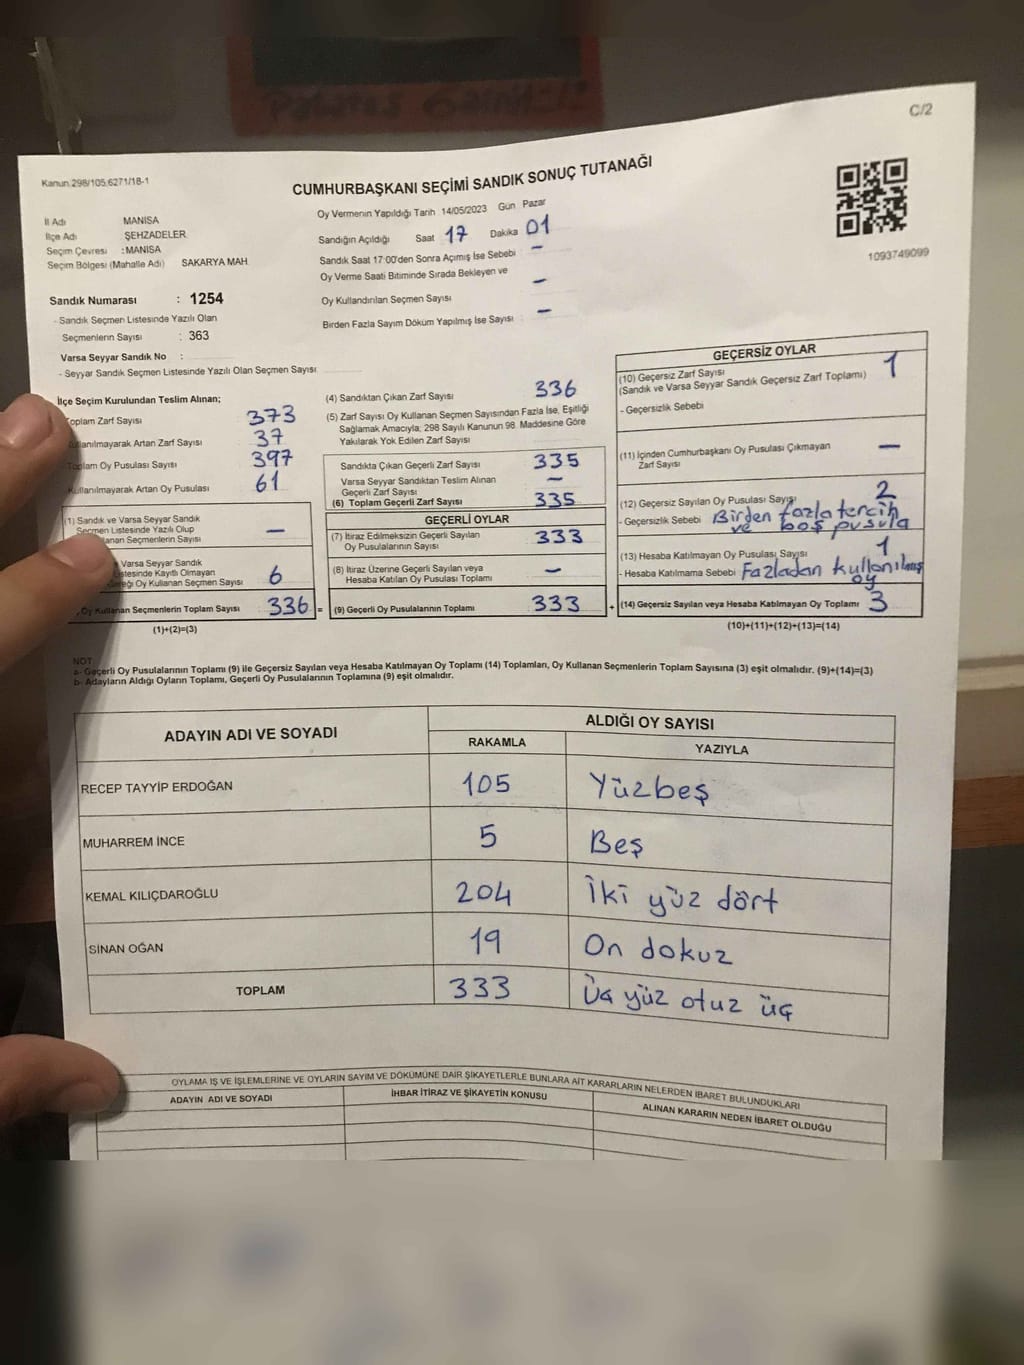 C/2
Kanun:298/105,6271/18-1
CUMHURBAŞKANI SEÇİMİ SANDIK SONUÇ TUTANAĞI
İl Adı MANİSA
İlçe Adı ŞEHZADELER
Seçim Çevresi : MANİSA
Seçim Bölgesi (Mahalle Adı) SAKARYA MAH.
Oy Vermenin Yapıldığı Tarih 14/05/2023 Gün Pazar
Sandığın Açıldığı Saat 17 Dakika 01
Sandık Saat 17:00'den Sonra Açımış İse Sebebi –
Oy Verme Saati Bitiminde Sırada Bekleyen ve
Oy Kullandırılan Seçmen Sayısı –
Birden Fazla Sayım Döküm Yapılmış İse Sayısı –
1093749099
Sandık Numarası : 1254
- Sandık Seçmen Listesinde Yazılı Olan
Seçmenlerin Sayısı : 363
Varsa Seyyar Sandık No :
- Seyyar Sandık Seçmen Listesinde Yazılı Olan Seçmen Sayısı
İlçe Seçim Kurulundan Teslim Alınan;
Toplam Zarf Sayısı 373
Kullanılmayarak Artan Zarf Sayısı 37
Toplam Oy Pusulası Sayısı 397
Kullanılmayarak Artan Oy Pusulası 61
(1) Sandık ve Varsa Seyyar Sandık
Seçmen Listesinde Yazılı Olup
Seçmenlerin Sayısı –
Varsa Seyyar Sandık
Listesinde Kayıtlı Olmayan
Oy Kullanan Seçmen Sayısı 6
Oy Kullanan Seçmenlerin Toplam Sayısı 336 =
(1)+(2)=(3)
(4) Sandıktan Çıkan Zarf Sayısı 336
(5) Zarf Sayısı Oy Kullanan Seçmen Sayısından Fazla İse, Eşitliği
Sağlamak Amacıyla; 298 Sayılı Kanunun 98. Maddesine Göre
Yakılarak Yok Edilen Zarf Sayısı
Sandıkta Çıkan Geçerli Zarf Sayısı 335
Varsa Seyyar Sandıktan Teslim Alınan
Geçerli Zarf Sayısı –
(6) Toplam Geçerli Zarf Sayısı 335
GEÇERLİ OYLAR
(7) İtiraz Edilmeksizin Geçerli Sayılan
Oy Pusulalarının Sayısı 333
(8) İtiraz Üzerine Geçerli Sayılan veya
Hesaba Katılan Oy Pusulası Toplamı –
(9) Geçerli Oy Pusulalarının Toplamı 333 +
GEÇERSİZ OYLAR
(10) Geçersiz Zarf Sayısı 1
(Sandık ve Varsa Seyyar Sandık Geçersiz Zarf Toplamı)
- Geçersizlik Sebebi
(11) İçinden Cumhurbaşkanı Oy Pusulası Çıkmayan
Zarf Sayısı –
(12) Geçersiz Sayılan Oy Pusulası Sayısı 2
- Geçersizlik Sebebi Birden fazla tercih
ve boş pusula
(13) Hesaba Katılmayan Oy Pusulası Sayısı 1
- Hesaba Katılmama Sebebi Fazladan kullanılmış
oy
(14) Geçersiz Sayılan veya Hesaba Katılmayan Oy Toplamı 3
(10)+(11)+(12)+(13)=(14)
NOT
a- Geçerli Oy Pusulalarının Toplamı (9) ile Geçersiz Sayılan veya Hesaba Katılmayan Oy Toplamı (14) Toplamları, Oy Kullanan Seçmenlerin Toplam Sayısına (3) eşit olmalıdır. (9)+(14)=(3)
b- Adayların Aldığı Oyların Toplamı, Geçerli Oy Pusulalarının Toplamına (9) eşit olmalıdır.
ADAYIN ADI VE SOYADI
ALDIĞI OY SAYISI
RAKAMLA YAZIYLA
RECEP TAYYİP ERDOĞAN 105 Yüzbeş
MUHARREM İNCE 5 Beş
KEMAL KILIÇDAROĞLU 204 İki yüz dört
SİNAN OĞAN 19 On dokuz
TOPLAM 333 Üç yüz otuz üç
OYLAMA İŞ VE İŞLEMLERİNE VE OYLARIN SAYIM VE DÖKÜMÜNE DAİR ŞİKAYETLERLE BUNLARA AİT KARARLARIN NELERDEN İBARET BULUNDUKLARI
ADAYIN ADI VE SOYADI İHBAR İTİRAZ VE ŞİKAYETİN KONUSU ALINAN KARARIN NEDEN İBARET OLDUĞU